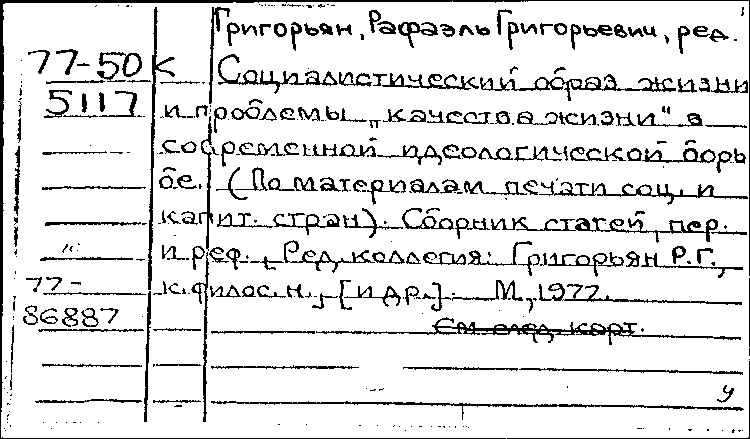 Григорьян, Рафаэль Григорьевич, ред.
77-50 К Социалистический образ жизни
5117 и проблемы „качества жизни" в
современной идеологической борь
бе. (По материалам печати соц. и
капит. стран). Сборник статей, пер.
и реф., Ред. коллегия: Григорьян Р.Г.,
77- к.филос.н., [и др.]. М., 1977.
86887 См. след. карт.
у